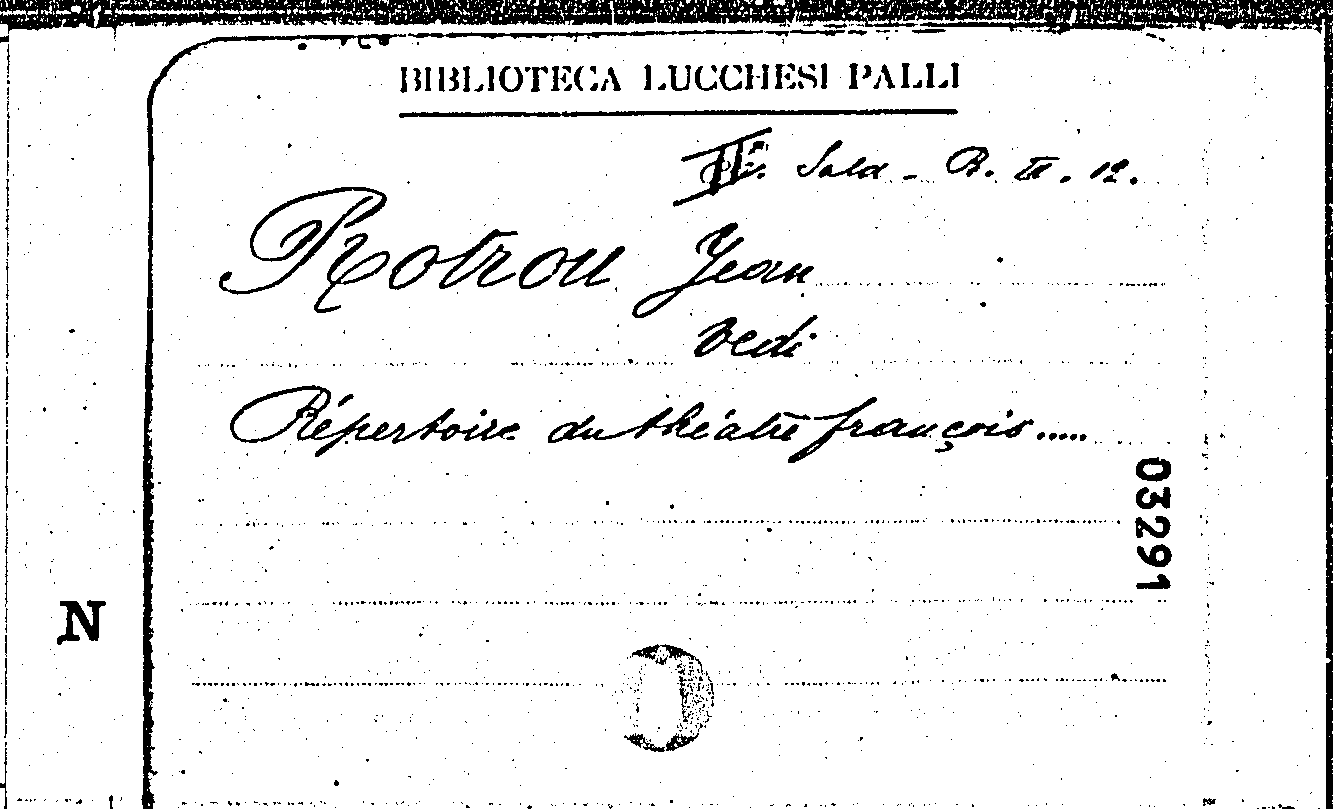 BIBLIOTECA LUCCHESI PALLI
II. Sala - B. VI. 12.
Rotrou Jean
vedi
Répertoire du théatre françois.....
03291
N